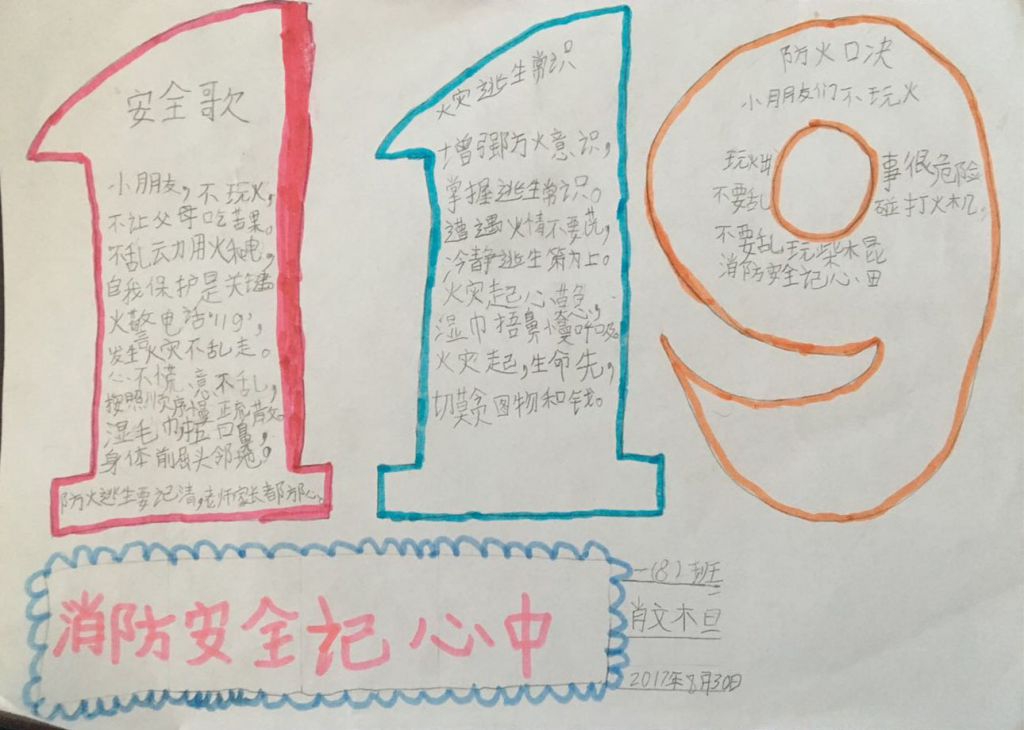 安全歌
小朋友,不玩火,
不让父母吃苦果。
不乱动用火和电,
自我保护是关键
火警电话"119",
发生火灾不乱走。
心不慌,意不乱,
按照顺序慢
湿毛巾 口鼻,
身体前屈头
防火逃生要记清,老师家长都
火灾逃生常识
增强防火意识,
掌握逃生常识。
遭遇火情不要慌,
冷静逃生策为上。
火灾起心
湿巾捂鼻慢呼吸。
火灾起,生命先,
切莫贪图物和钱。
防火口决
小朋友们不玩火
玩火 事很危险
不要乱碰打火机,
不要乱玩柴木昆
消防安全记心田
消防安全记心中
一(8)班
肖文木旦
2017年 月30日